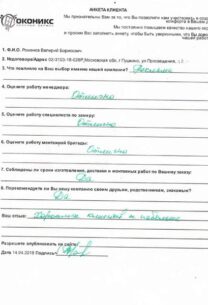 ОКОНИКС
АНКЕТА КЛИЕНТА
Мы признательны Вам за то, что Вы позволяете нам участвовать в
комфорта в Вашем
Мы постоянно повышаем качество нашего
и просим Вас заполнить анкету, чтобы быть уверенными, что Вы
нашей работы!
1. Ф.И.О. Романов Валерий Борисович
2. Московская обл, г Пушкино, ул Просвещения,
3. Что повлияло на Ваш выбор именно нашей компании? Реклама
4. Оцените работу менеджера:
Отлично
5. Оцените работу специалиста по замеру:
Отлично
6. Оцените работу монтажной бригады:
Отлично
7. Соблюдены ли сроки изготовления, доставки и монтажных работ по Вашему заказу:
Да
8. Порекомендуете ли Вы нашу компанию своим друзьям, родственникам, знакомым?
Да
Ваш отзыв: Хороших клиентов и
Разрешите опубликовать на сайте:
Дата 14.04.2018 Подпись